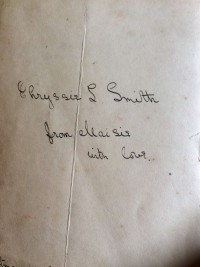 Chryssie L Smith
from Maisie
with love.